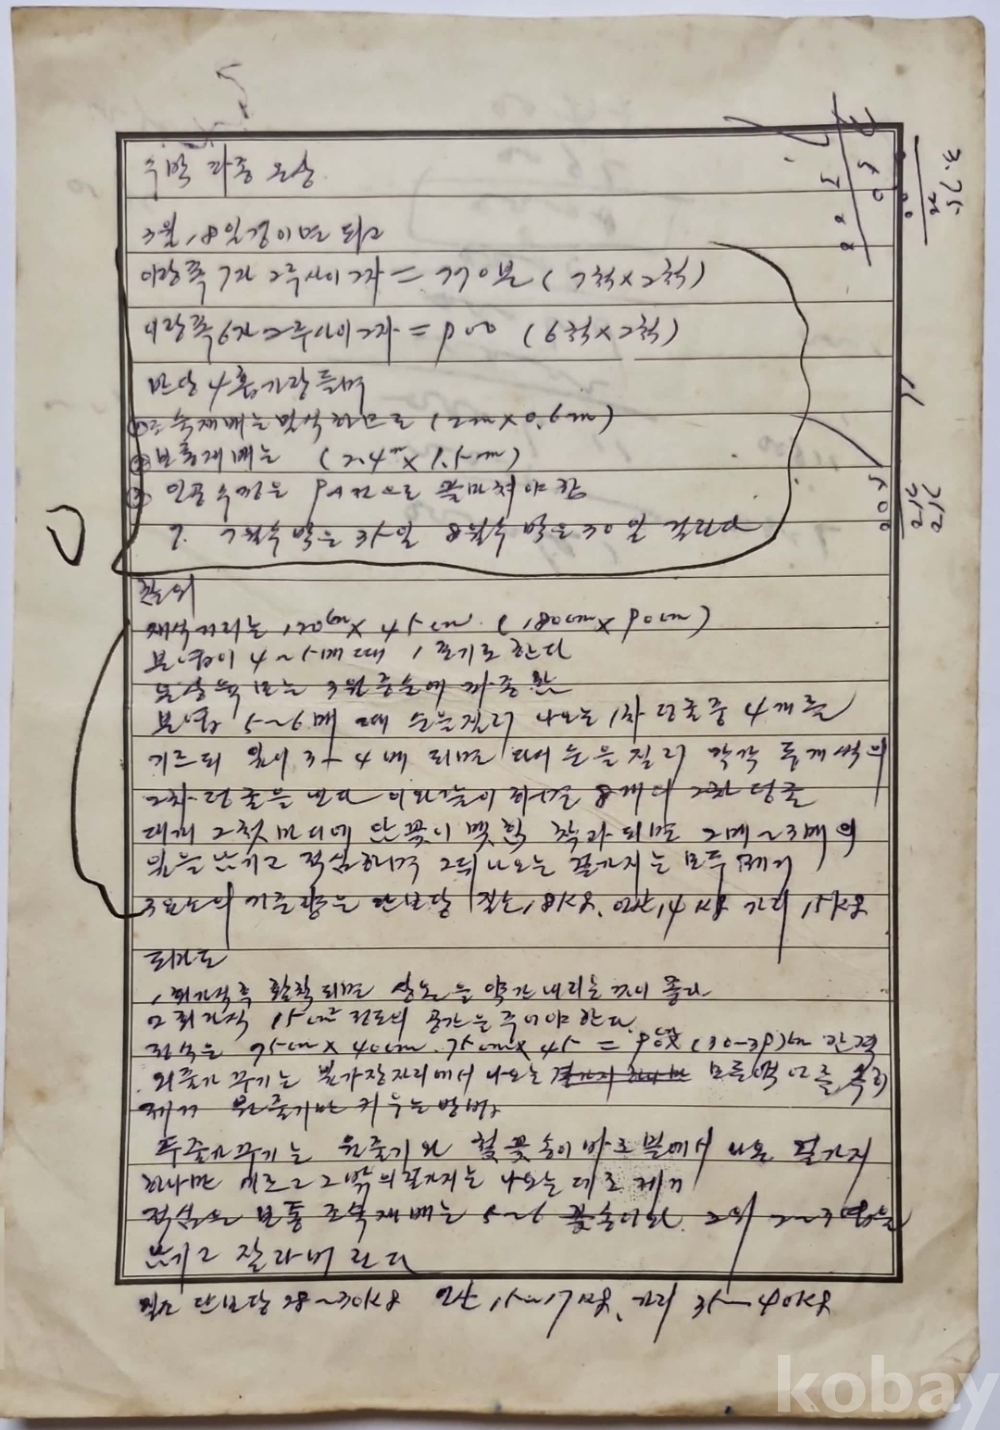 수박 파종 온상
3월 18일경이면 되고
이랑폭 7자 2주사이 2자 = 770본 (7척×2척)
이랑폭 6자 2주사이 2자 = 900 (6척×2척)
반당 4홉가량 들며
① 조숙재배는 밀식하므로 (2m×0.6m)
② 보통재배는 (2.4m×1.5m)
③ 인공수정은 9시전으로 끝마쳐야함
7월수박은 35일 8월수박은 30일 걸린다
참외
재식거리는 120cm×45cm (180cm×90cm)
본엽이 4~5매 때 1포기로 한다
3월중순에 파종한
본엽 5~6매 때 순을질러 나오는 1차 덩굴중 4개를
기르되 잎이 3-4매 되면 다시 순을 질러 각각 두개씩의
2차덩굴을 낸다 이와같이 하면 8개의 2차덩굴
2첫마디에 암꽃이 맺혀 착과되면 2매~3매의
잎을 남기고 적심하며 그뒤 나오는 곁가지는 모두 제거
3요소의 기준량은 단보당 질소 18Kg, 인산 14Kg 가리 15Kg
도마도
1회가식후 활착되면 상온을 약간 내리는 것이 좋다
2회가식 15cm 정도의 공간을 주어야 한다
정식은 75cm×40cm. 75cm×45 = 간격
외줄가꾸기는 나오는 모든 곁순을
제거 원줄기만 키우는 방법
두줄가꾸기는 원줄기와 첫꽃송이 바로 밑에서 나온 곁가지
하나만 기르고 그밖의 곁가지는 나오는대로 제거
적심은 보통 조숙재배는 5~6 꽃송이와 그위 2~3엽을
남기고 잘라버린다
질소 단보당 28~30Kg 인산 15~17Kg, 가리 35~40Kg
3.75
500
212
212
kobay